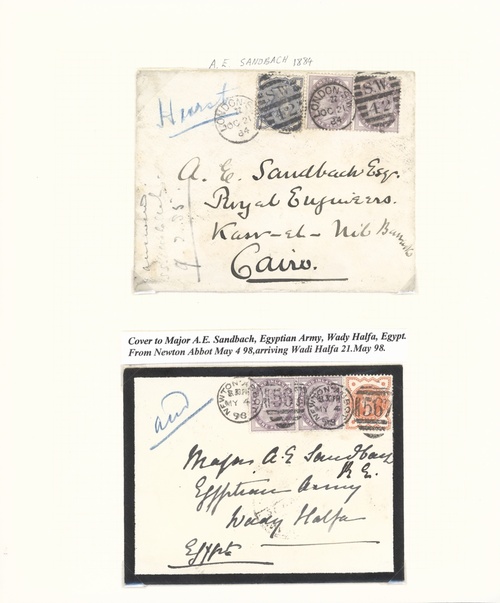 A. E. SANDBACH 1884
Hurst
LONDON S.W
OC 21
84
S.W.
42
LONDON S.W
OC 21
84
S.W.
42
A. E. Sandbach Esqr.
Royal Engineers.
Kasr-el-Nil Barracks
Cairo.
Cover to Major A.E. Sandbach, Egyptian Army, Wady Halfa, Egypt.
From Newton Abbot May 4 98,arriving Wadi Halfa 21.May 98.
and
NEWTON-ABBOT
MY 4
98
567
NEWTON-ABBOT
98
567
Major A.E Sandbach
R.E.
Egyptian Army
Wady Halfa
Egypt